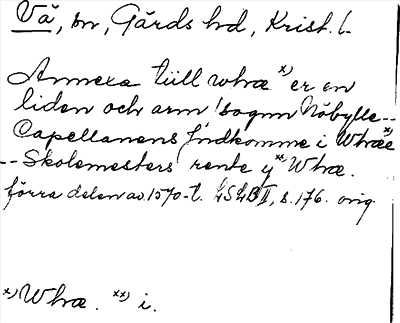 Vä, sn, Gärds hd, Krist. l.
Annexa tüll whæ x) er en
liden och arm sognn Nöbylle --
Capellanens Indkomme i Whæ x)
-- Skolemesters rente y xx) Whæ.
förra delen av 1570-t. LSLB II, s. 176. orig.
x) Whæ. xx) i.